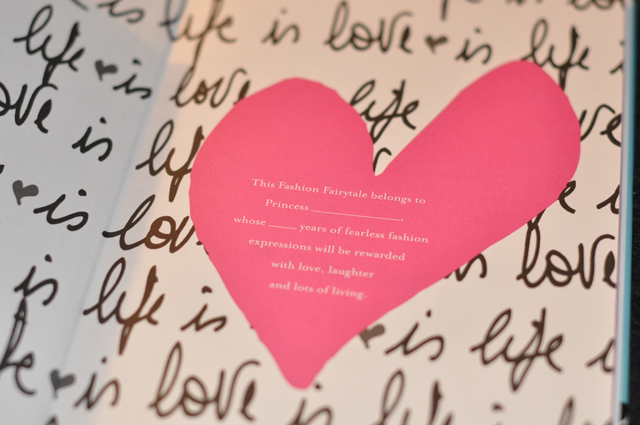 life is love is life
life is love life
is life
This Fashion Fairytale belongs to
Princess ______________.
whose _____ years of fearless fashion
expressions will be rewarded
with love, laughter
and lots of living.
is love
is life is love
is life is
is love is